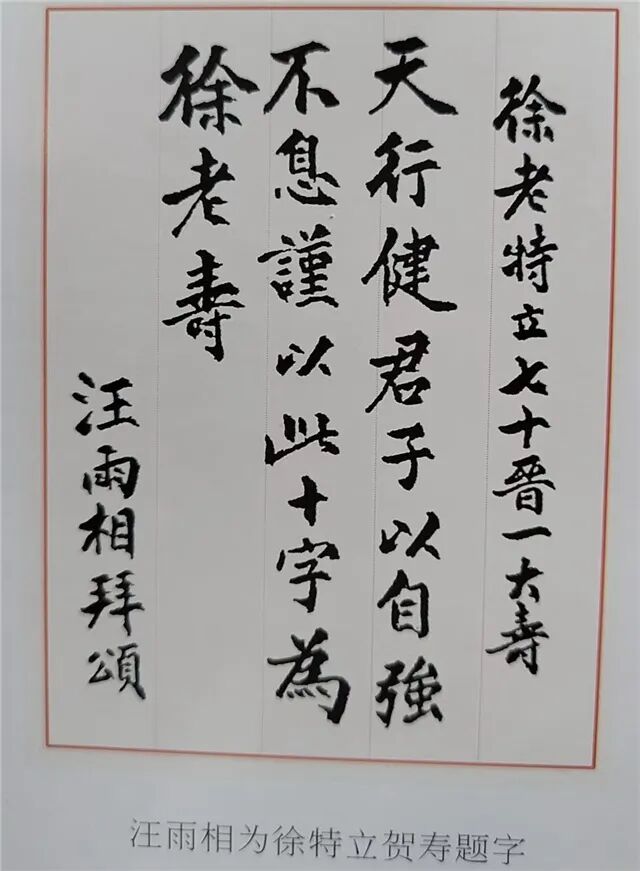 徐老特立七十晉一大壽
天行健君子以自強
不息謹以此十字為
徐老壽
汪雨相拜頌
汪雨相为徐特立贺寿题字